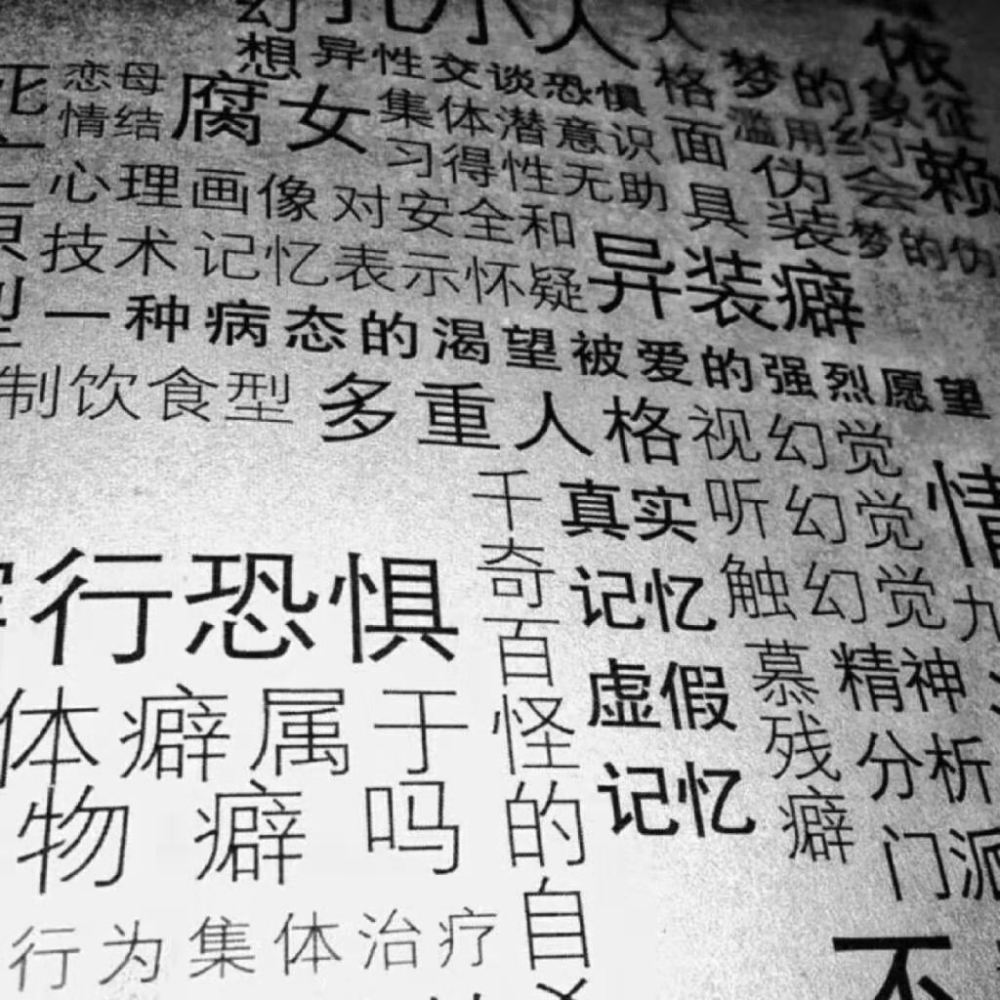 幻
想
人
异性交谈恐惧
格
面
具
梦的象征
依
赖
恋母
情结
腐女
集体潜意识
滥用
约
会
伪
装
习得性无助
心理画像
对安全和
梦的伪
技术
记忆表示怀疑
异装癖
一种病态的渴望被爱的强烈愿望
制饮食型
多重人格
视幻觉
听幻觉
触幻觉
千
奇
百
怪
的
自
真实
记忆
虚假
记忆
行恐惧
慕
残
癖
精神
分析
门派
情
九
体癖属于
物癖吗
行为集体治疗
不